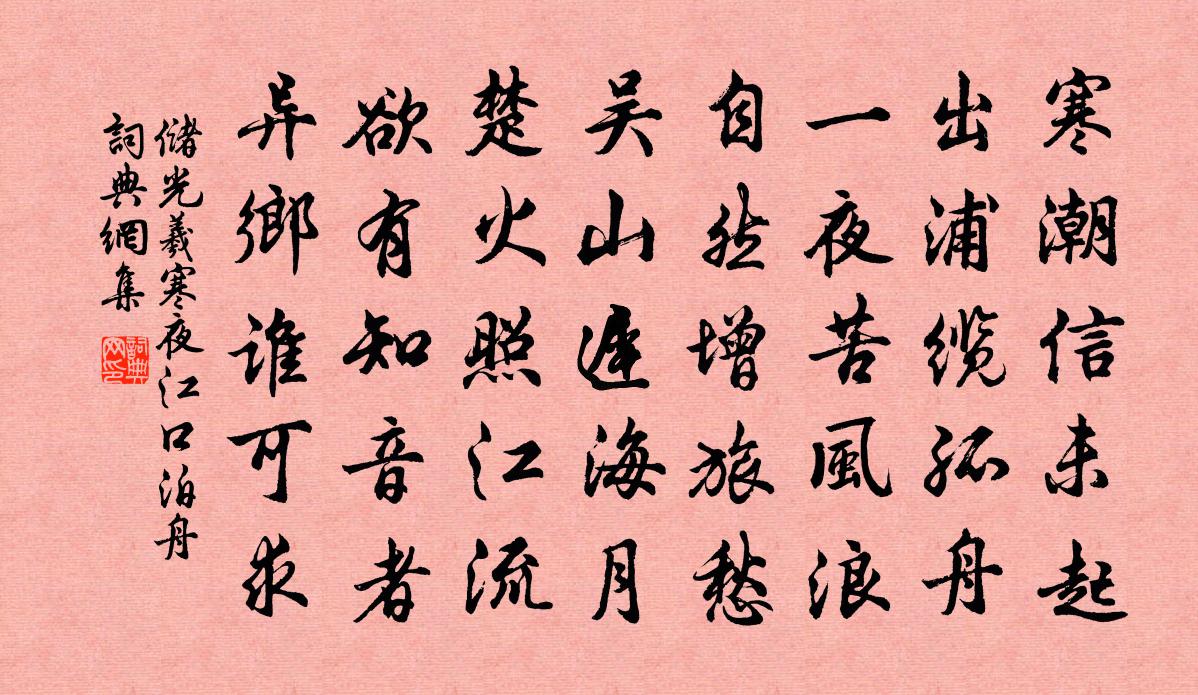 寒潮信未起
出浦缆孤舟
一夜苦風浪
自然增旅愁
吴山遲海月
楚火照江流
欲有知音者
异鄉谁可求
儲光羲寒夜江口泊舟
詞典網集
詞典网印